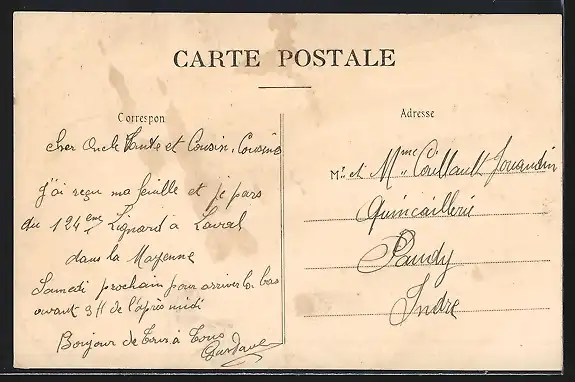 CARTE POSTALE
Correspon
Cher Oncle Tante et Cousin, Cousine
J'ai reçu ma feuille et je pars
au 124eme Lignard à Laval
dans la Mayenne
Samedi prochain pour arriver la bas
avant 3H de l'après midi
Bonjour de Tous à Tous
Gustave
Adresse
Mr. et Mme Couillault Jouandin
Quincaillerie
Paudy
Indre